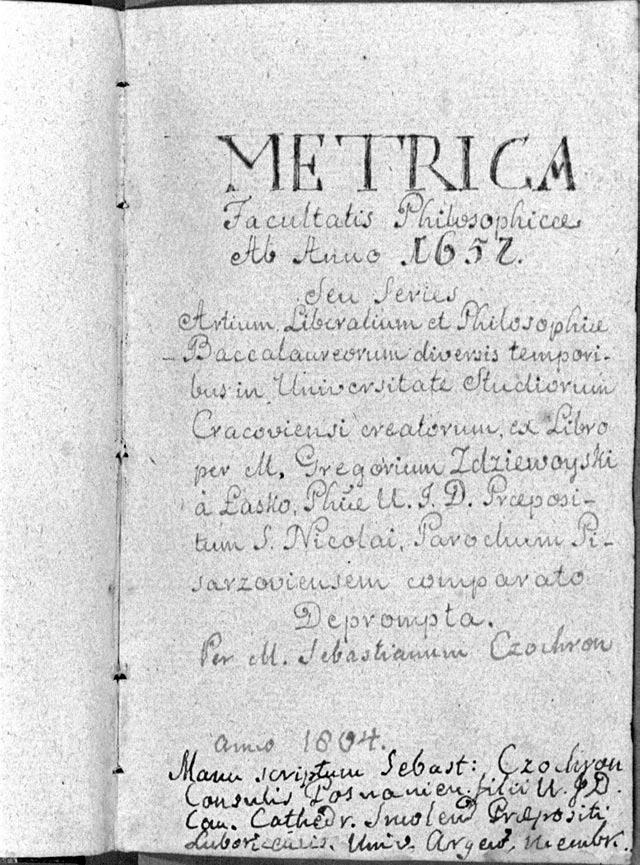 METRICA
Facultatis Philosophicæ
Ab Anno 1652.
Seu Series
Artium Liberalium et Philosophiæ
Baccalaureorum diversis tempori-
bus in Universitate Studiorum
Cracoviensi creatorum, ex Libro
per M. Gregorium Zdziewoyski
à Łasko, Phiæ U. J. D. Præposi-
tum S. Nicolai, Parochum Pi-
sarzoviensem comparato
Deprompta.
Per M. Sebastianum Czochron
anno 1804.
Manu scriptum Sebast: Czochron
Consulis Posnanien. filii U. J D.
Can. Cathedr. Smolend Præpositi
Univ. membr.